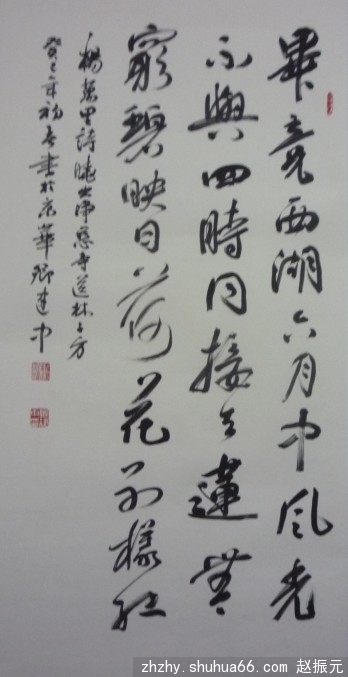 畢竟西湖六月中風光
不與四時同接天蓮無
窮碧映日荷花別樣紅
楊萬里詩曉出淨慈寺送林子方
癸巳年初春書於京華
zhzhy.shuhua66.com 赵振元